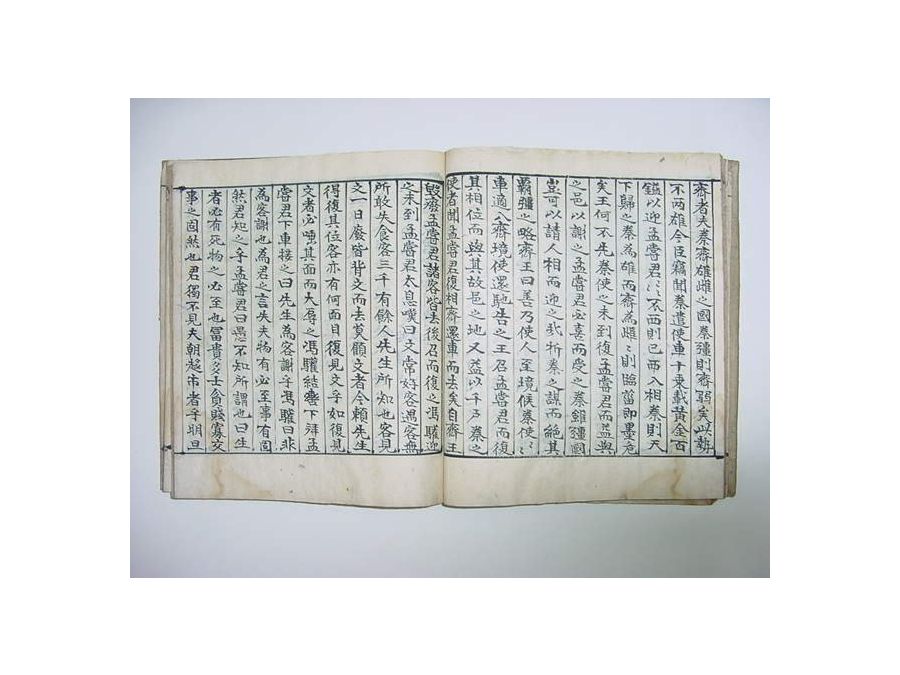 齊者夫秦齊雄雌之國秦彊則齊弱矣此勢
不兩雄今臣竊聞秦遣使車十乘載黃金百
鎰以迎孟嘗君〻〻〻不西則已西入相秦則天
下歸之秦為雄而齊為雌〻則臨菑即墨危
矣王何不先秦使之未到復孟嘗君而益與
之邑以謝之孟嘗君必喜而受之秦雖彊國
豈可以請人相而迎之哉折秦之謀而絕其
霸彊之略齊王曰善乃使人至境候秦使〻
車適入齊境使還馳告之王召孟嘗君而復
其相位而與其故邑之地又益以千戶秦之
使者聞孟嘗君復相齊還車而去矣自齊王
毀廢孟嘗君諸客皆去後召而復之馮驩迎
之未到孟嘗君太息嘆曰文常好客遇客無
所敢失食客三千有餘人先生所知也客見
文一日廢皆背文而去莫顧文者今賴先生
得復其位客亦有何面目復見文乎如復見
文者必唾其面而大辱之馮驩結轡下拜孟
嘗君下車接之曰先生為客謝乎馮驩曰非
為客謝也為君之言失夫物有必至事有固
然君知之乎孟嘗君曰愚不知所謂也曰生
者必有死物之必至也冨貴多士貧賤寡交
事之固然也君獨不見夫朝趍市者乎明旦